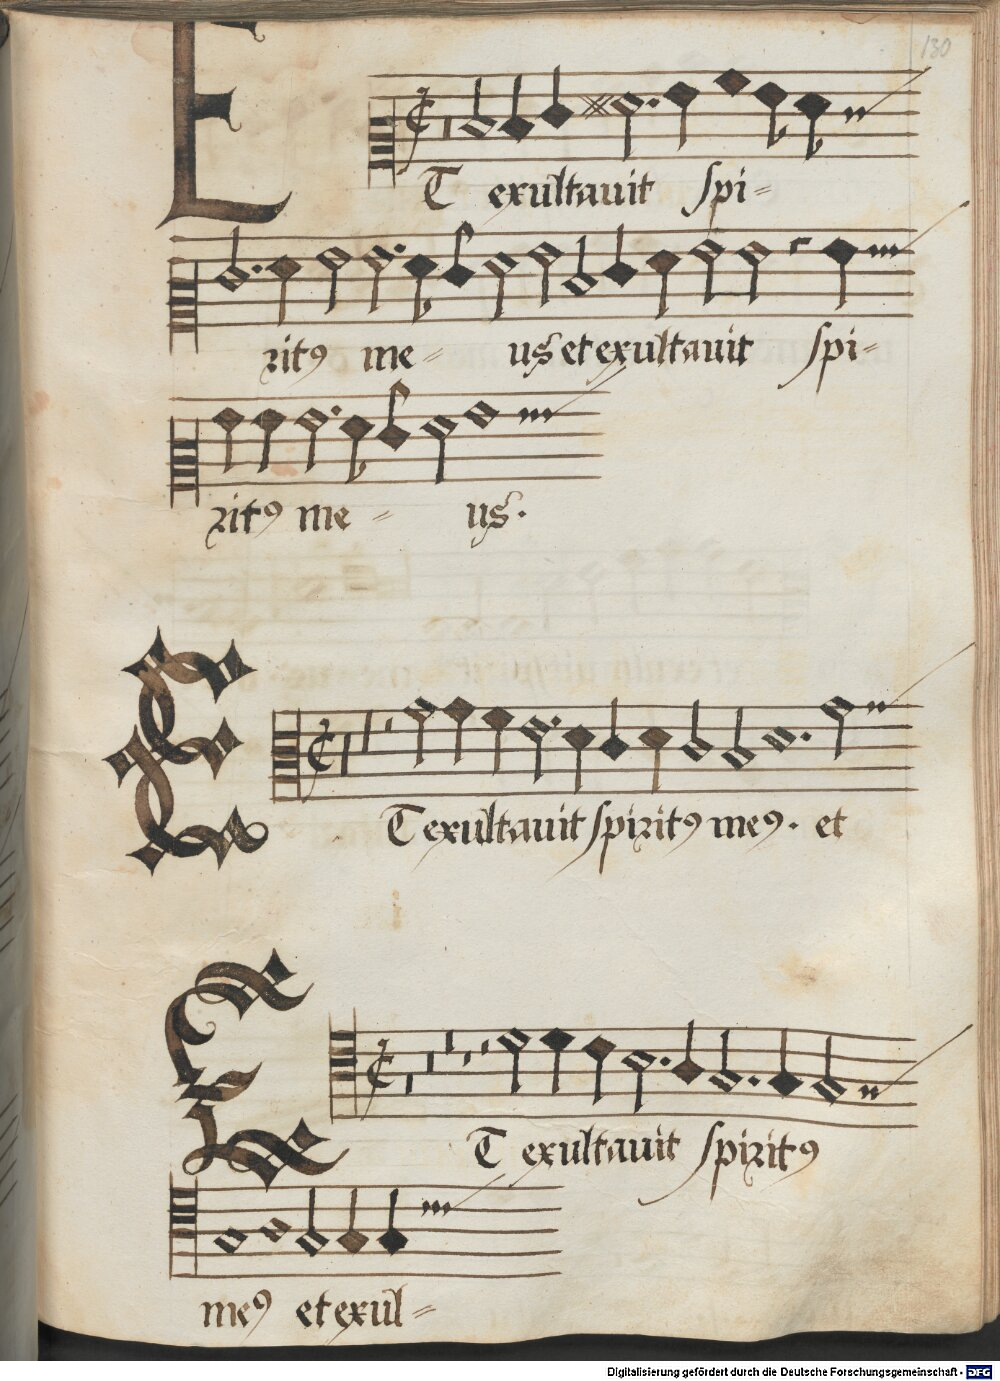 130
ET exultauit spi=
ritꝯ me= us et exultauit spi=
ritꝯ me= us.
ET exultauit spiritꝯ meꝯ. et
ET exultauit spiritꝯ
meꝯ et exul=
Digitalisierung gefördert durch die Deutsche Forschungsgemeinschaft - DFG